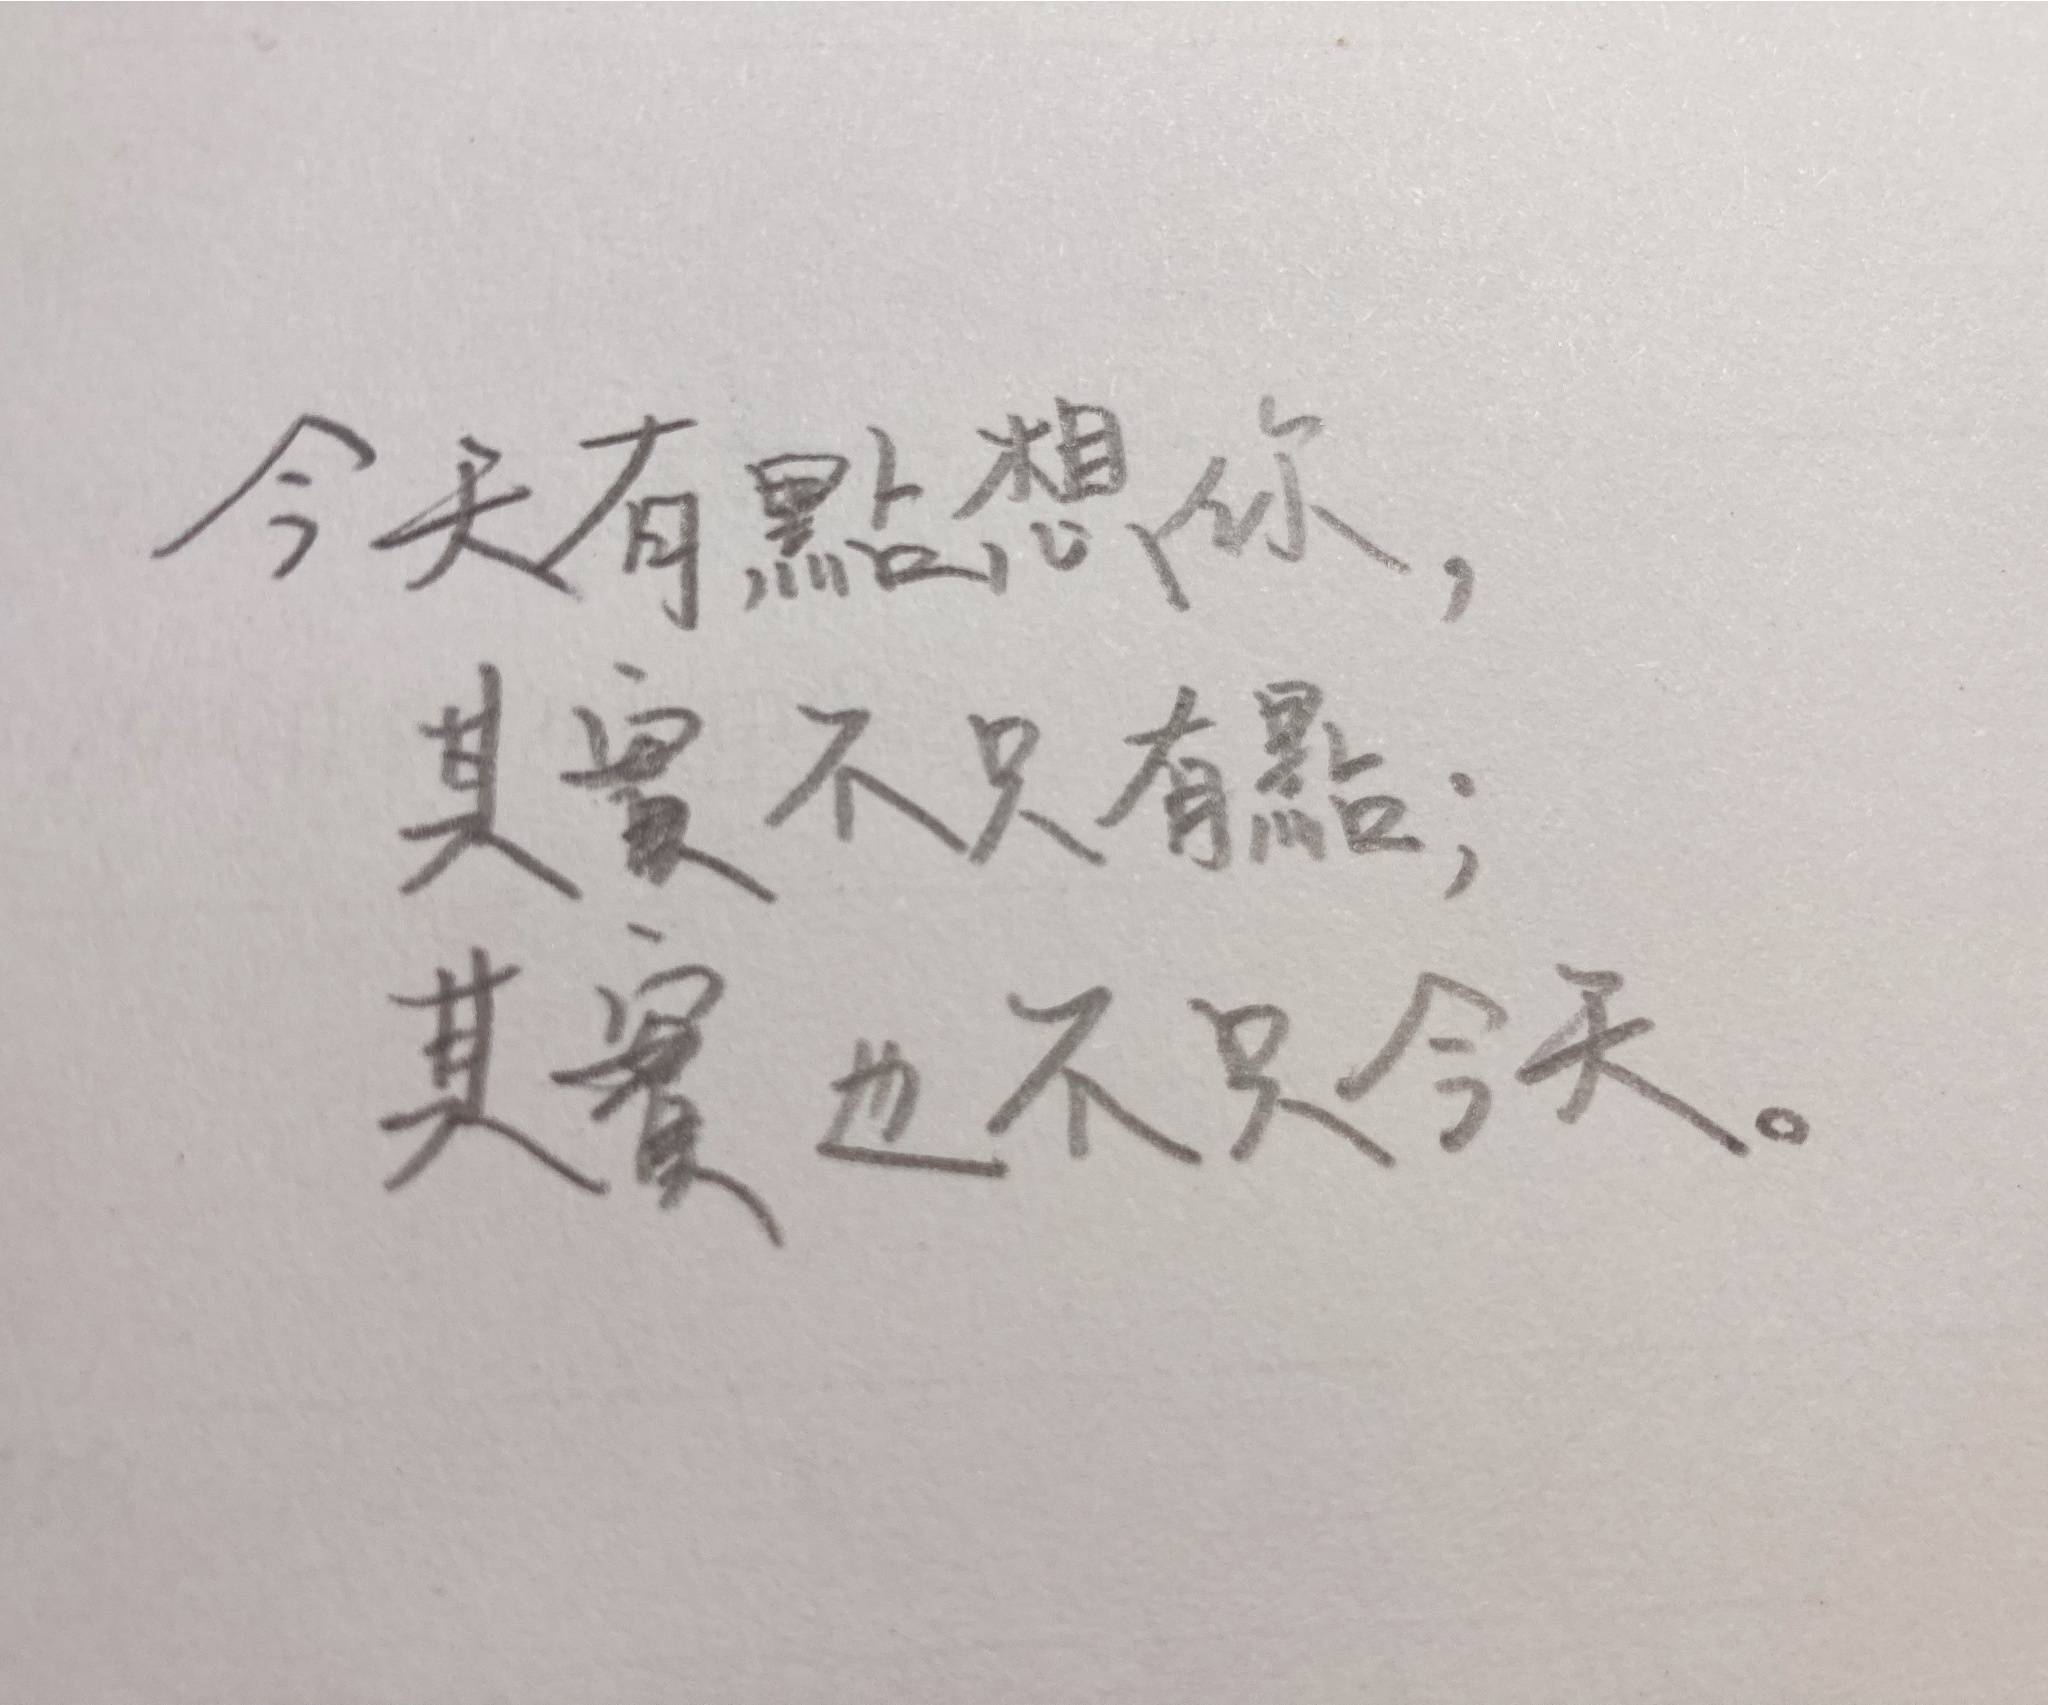 今天有點想你，
其實不只有點；
其實也不只今天。